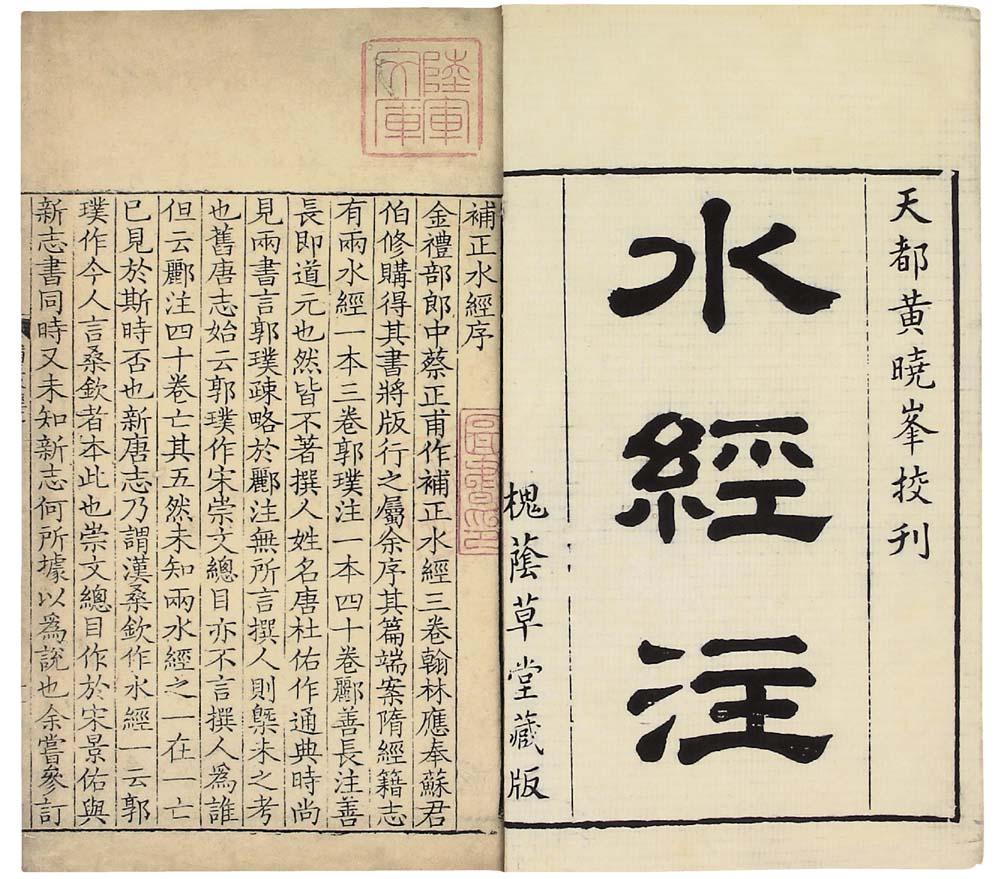 天都黄曉峯挍刊
水經注
槐蔭草堂藏版
補正水經序
金禮部郎中蔡正甫作補正水經三卷翰林應奉蘇君
伯修購得其書將版行之屬余序其篇端案隋經籍志
有兩水經一本三卷郭璞注一本四十卷酈善長注善
長即道元也然皆不著撰人姓名唐杜佑作通典時尚
見兩書言郭璞疎略於酈注無所言撰人則槩未之考
也舊唐志始云郭璞作宋崇文總目亦不言撰人爲誰
但云酈注四十卷亡其五然未知兩水經之一在一亡
已見於斯時否也新唐志乃謂漢桑欽作水經一云郭
璞作今人言桑欽者本此也崇文總目作於宋景佑與
新志書同時又未知新志何所據以爲說也余嘗參訂